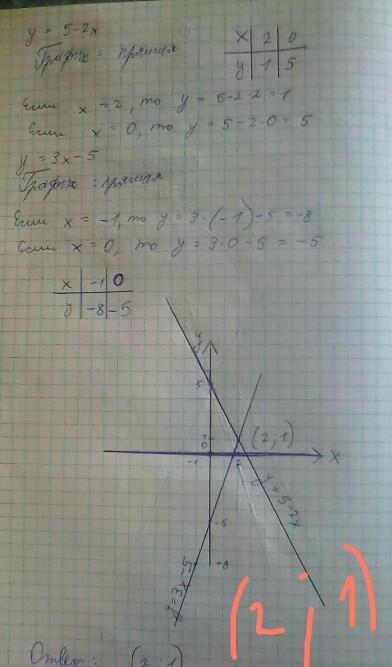 y = 5-2x
График: прямая
x 2 0
y 1 5
Если x = 2, то y = 5-2·2 = 1
Если x = 0, то y = 5-2·0 = 5
y = 3x-5
График: прямая
Если x = -1, то y = 3·(-1)-5 = -8
Если x = 0, то y = 3·0-5 = -5
x -1 0
y -8 -5
y
5
(2;1)
1
0
-1
x
y=5-2x
-5
-8
y=3x-5
(2;1)
Ответ: (2;1)